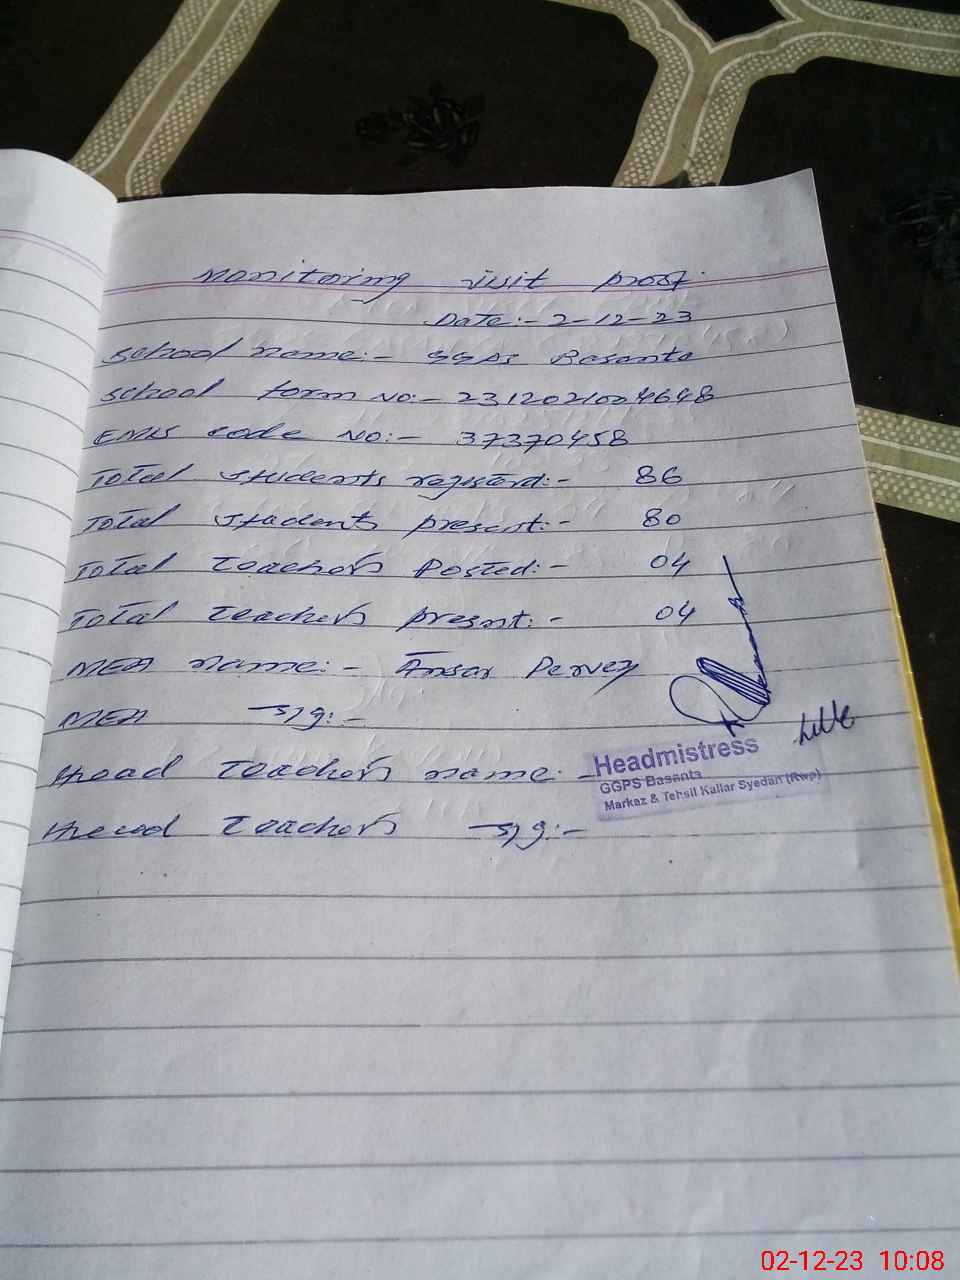 Monitoring visit proof.
Date:- 2-12-23
School name:- GGPS Basanta
School form No:- 2312021004648
EMIS code No:- 37370458
Total students registerd:- 86
Total students present:- 80
Total teachers Posted:- 04
Total teachers present:- 04
MEA name:- Ansar Pervez
MEA sig:-
Head teachers name:-
Headmistress
GGPS Basanta
Markaz & Tehsil Kallar Syedan (Rwp)
Head teachers sig:-
02-12-23 10:08